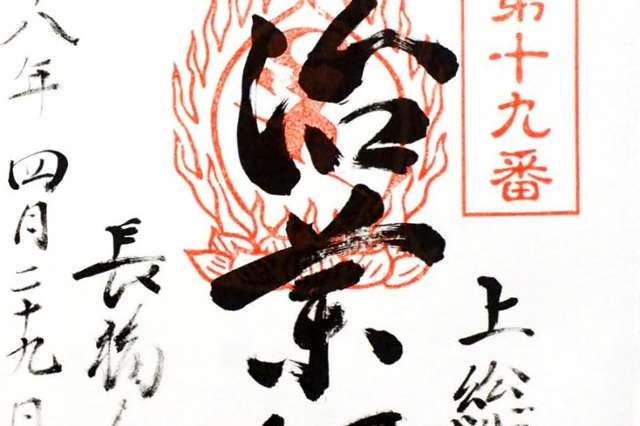 第十九番
上総
治業
長福
八年 四月二十九日